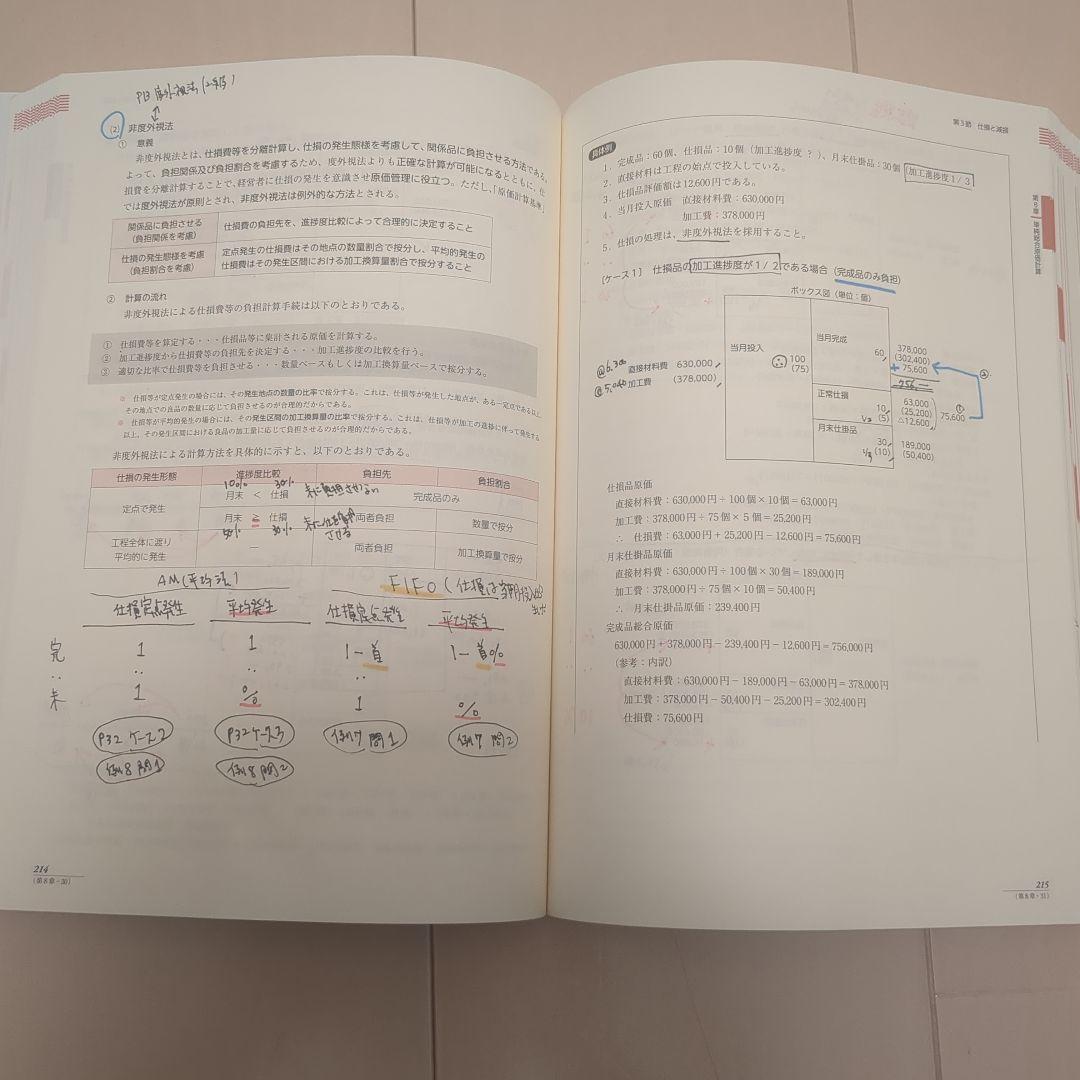 P13 度外視法(2手法)
(2) 非度外視法
① 意義
非度外視法とは、仕損費等を分離計算し、仕損の発生態様を考慮して、関係品に負担させる方法である。
よって、負担関係及び負担割合を考慮するため、度外視法よりも正確な計算が可能になるとともに、仕
損費を分離計算することで、経営者に仕損の発生を意識させ原価管理に役立つ。ただし、「原価計算基準」
では度外視法が原則とされ、非度外視法は例外的な方法とされる。
関係品に負担させる 仕損費の負担先を、進捗度比較によって合理的に決定すること
(負担関係を考慮)
仕損の発生態様を考慮 定点発生の仕損費はその地点の数量割合で按分し、平均的発生の
(負担割合を考慮) 仕損費はその発生区間における加工換算量割合で按分すること
② 計算の流れ
非度外視法による仕損費等の負担計算手続は以下のとおりである。
① 仕損費等を算定する・・・仕損品等に集計される原価を計算する。
② 加工進捗度から仕損費等の負担先を決定する・・・加工進捗度の比較を行う。
③ 適切な比率で仕損費等を負担させる・・・数量ベースもしくは加工換算量ベースで按分する。
※ 仕損等が定点発生の場合には、その発生地点の数量の比率で按分する。これは、仕損等が発生した地点が、ある一定点である以上、
その地点での良品の数量に応じて負担させるのが合理的だからである。
※ 仕損等が平均的発生の場合には、その発生区間の加工換算量の比率で按分する。これは、仕損等が加工の進捗に伴って発生する
以上、その発生区間における良品の加工量に応じて負担させるのが合理的だからである。
非度外視法による計算方法を具体的に示すと、以下のとおりである。
仕損の発生形態 進捗度比較 負担先 負担割合
10% 30%
定点で発生 月末 < 仕損 末に負担させない 完成品のみ
月末 ≧ 仕損 両者負担 数量で按分
50% 30% 末に仕損負担させる
工程全体に渡り
平均的に発生 — 両者負担 加工換算量で按分
AM(平均法) FIFO(仕損は当期投入
仕損定点発生 平均発生 仕損定点発生 平均発生
完 1 1 1-首 1-首%
: : : :
末 1 % 1 %
P32 ケース2 P32ケース3 例7 問1 例7 問2
例8 問1 例8 問2
214
(第8章-30)
第3節 仕損と減損
第8章 単純総合原価計算
具体例
1．完成品：60個、仕損品：10個（加工進捗度 ？）、月末仕掛品：30個（加工進捗度1/3）
2．直接材料は工程の始点で投入している。
3．仕損品評価額は12,600円である。
4．当月投入原価 直接材料費：630,000円
加工費：378,000円
5．仕損の処理は、非度外視法を採用すること。
［ケース1］ 仕損品の加工進捗度が1/2である場合（完成品のみ負担）
ボックス図（単位：個）
当月投入 100 (75)
@6,300 直接材料費 630,000
@5,040 加工費 (378,000)
当月完成 60 378,000
(302,400)
+ 75,600
756,—
②
正常仕損 10 63,000
1/2 (5) (25,200)
△12,600
① 75,600
月末仕掛品 30 189,000
1/3 (10) (50,400)
仕損品原価
直接材料費：630,000円÷100個×10個＝63,000円
加工費：378,000円÷75個×5個＝25,200円
∴ 仕損費：63,000円＋25,200円－12,600円＝75,600円
月末仕掛品原価
直接材料費：630,000円÷100個×30個＝189,000円
加工費：378,000円÷75個×10個＝50,400円
∴ 月末仕掛品原価：239,400円
完成品総合原価
630,000円＋378,000円－239,400円－12,600円＝756,000円
（参考：内訳）
直接材料費：630,000円－189,000円－63,000円＝378,000円
加工費：378,000円－50,400円－25,200円＝302,400円
仕損費：75,600円
215
(第8章-31)